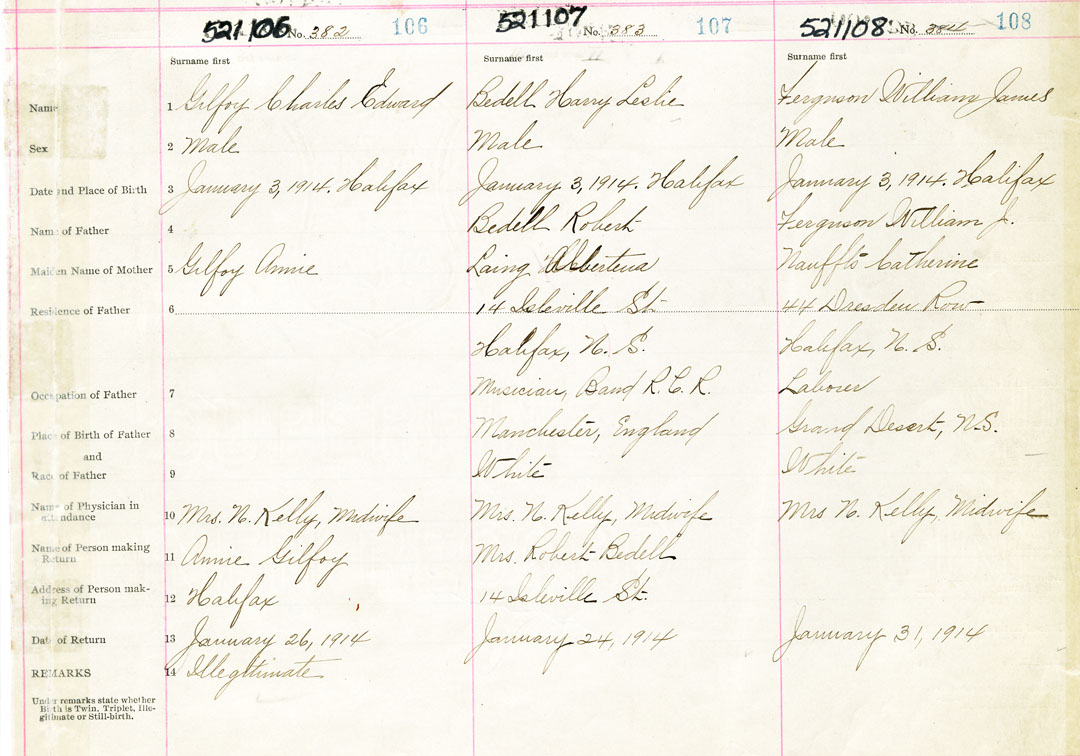 521106 No. 382 106 521107 No. 383 107 521108 No. 384 108
Surname first Surname first Surname first
Name 1 Gilfoy Charles Edward Bedell Harry Leslie Ferguson William James
Sex 2 Male Male Male
Date and Place of Birth 3 January 3, 1914. Halifax January 3, 1914. Halifax January 3, 1914. Halifax
Name of Father 4 Bedell Robert Ferguson William J.
Maiden Name of Mother 5 Gilfoy Annie Laing Nauffts Catherine
Residence of Father 6 14 Isleville St. 44 Dresden Row
Halifax, N. S. Halifax, N. S.
Occupation of Father 7 Musician, Band R. C. R. Laborer
Place of Birth of Father 8 Manchester, England Grand Desert, N.S.
and
Race of Father 9 White White
Name of Physician in
attendance 10 Mrs. N. Kelly, Midwife Mrs. N. Kelly, Midwife Mrs N. Kelly, Midwife
Name of Person making
Return 11 Annie Gilfoy Mrs. Robert Bedell
Address of Person mak-
ing Return 12 Halifax 14 Isleville St.
Date of Return 13 January 26, 1914 January 24, 1914 January 31, 1914
REMARKS 14 Illegitimate
Under remarks state whether
Birth is Twin, Triplet, Ille-
gitimate or Still-birth.